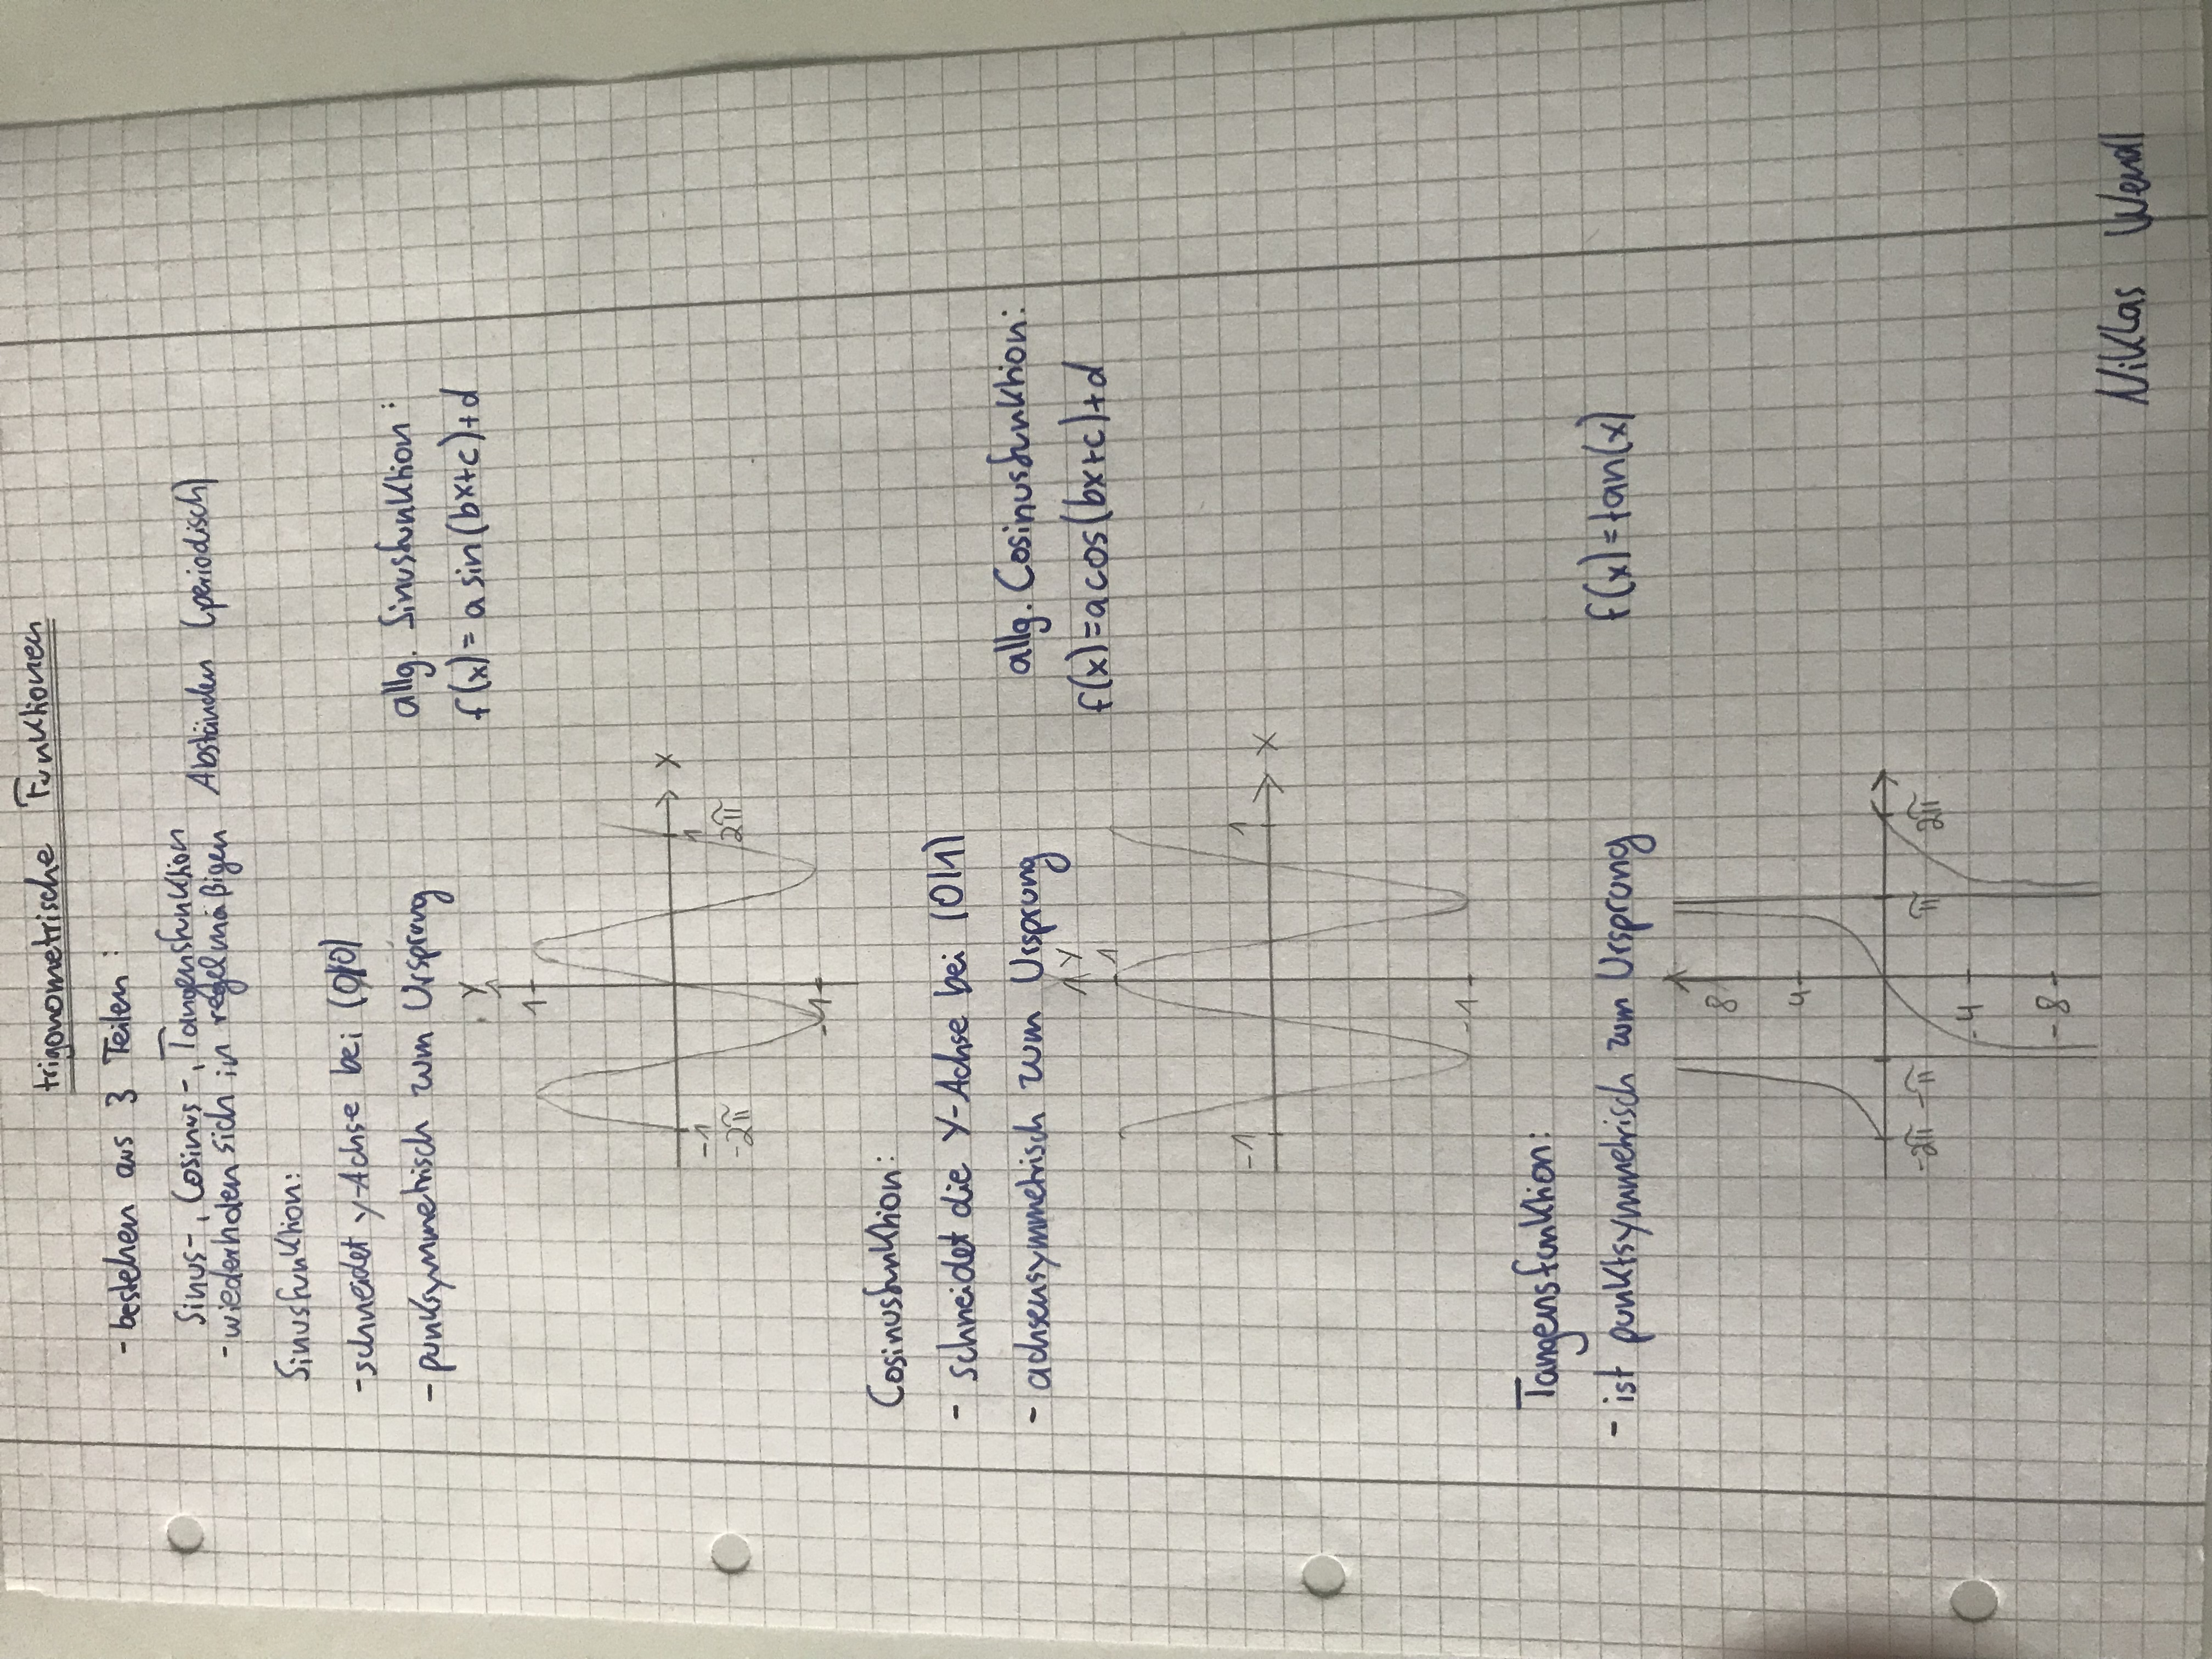 trigonometrische Funktionen
- bestehen aus 3 Teilen:
Sinus-, Cosinus-, Tangensfunktion
- wiederholen sich in regelmäßigen Abständen (periodisch)
Sinusfunktion:
- schneidet y-Achse bei (0|0)
- punksymmetrisch zum Ursprung
allg. Sinusfunktion:
f(x) = a sin(bx+c)+d
y
1
x
-1
1
-2π
2π
-1
Cosinusfunktion:
- schneidet die Y-Achse bei (0|1)
- achsensymmetrisch zum Ursprung
allg. Cosinusfunktion:
f(x)=acos(bx+c)+d
y
1
x
-1
1
-1
Tangensfunktion:
- ist punktsymmetrisch zum Ursprung
f(x)=tan(x)
8
4
-2π -π π 2π
-4
-8
Niklas Wendl